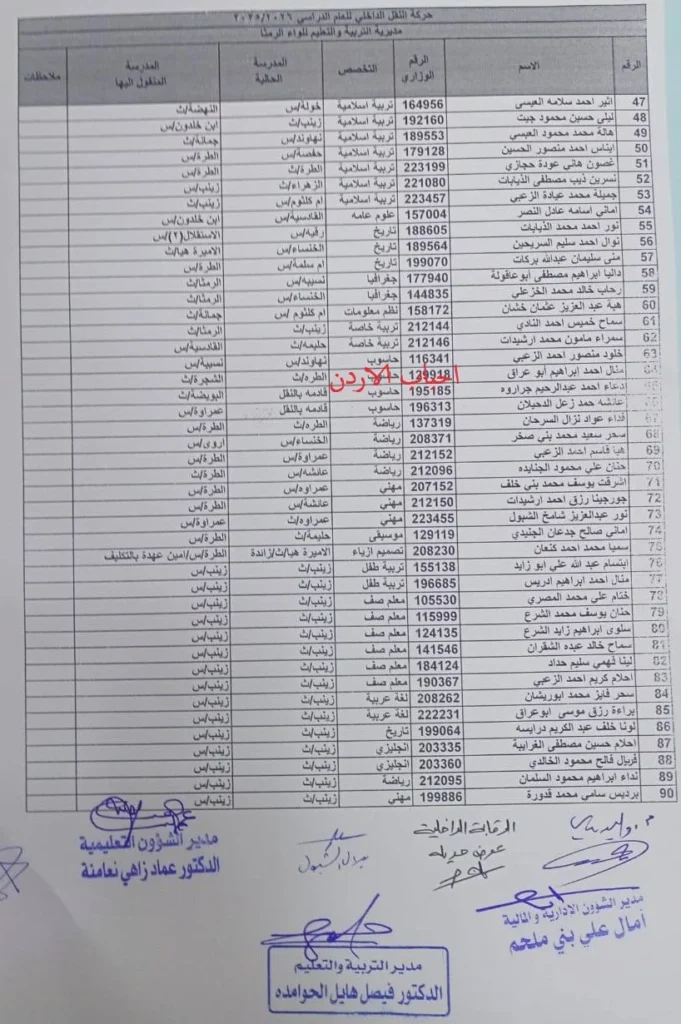 حركة النقل الداخلي للعام الدراسي ٢٠٢٥/٢٠٢٦
مديرية التربية والتعليم للواء الرمثا
الرقم الاسم الرقم الوزاري التخصص المدرسة الحالية المدرسة المنقول اليها ملاحظات
47 اثير احمد سلامه العيسى 164956 تربية اسلامية خولة/س النهضة/ث
48 ليلى حسين محمود جيت 192160 تربية اسلامية زينب/ث ابن خلدون/س
49 هالة محمد محمود العيسي 189553 تربية اسلامية نهاوند/س جمانة/ث
50 ايناس احمد منصور الحسين 179128 تربية اسلامية حفصة/س الطرة/س
51 غصون هاني عودة حجازي 223199 تربية اسلامية الطرة/ث الطرة/س
52 نسرين ذيب مصطفى الذيابات 221080 تربية اسلامية الزهراء/ث زينب/س
53 جميلة محمد عيادة الزعبي 223457 تربية اسلامية ام كلثوم/س زينب/ث
54 اماني اسامه عادل النصر 157004 علوم عامه القادسية/س ابن خلدون/س
55 نور احمد محمد الذيابات 188605 تاريخ رقيه/س الاستقلال(٢)/س
56 نوال احمد سليم السريحين 189564 تاريخ الخنساء/س الاميرة هيا/ث
57 منى سليمان عبدالله بركات 199070 تاريخ ام سلمة/س الطرة/س
58 داليا ابراهيم مصطفى ابوعاقولة 177940 جغرافيا نسيبه/س الرمثا/ث
59 رحاب خالد محمد الخزعلي 144835 جغرافيا الخنساء/س الرمثا/ث
60 هبة عبد العزيز عثمان خشان 158172 نظم معلومات ام كلثوم /س جمانة/ث
61 سماح خميس احمد النادي 212144 تربية خاصة زينب/ث الرمثا/ث
62 سمراء مامون محمد ارشيدات 212146 تربية خاصة حليمه/ث القادسية/س
63 خلود منصور احمد الزعبي 116341 حاسوب نهاوند/س نسيبة/س
64 منال احمد ابراهيم ابو عراق 129918 حاسوب الطره/ث الشجرة/ث
احباب الاردن
دعاء احمد عبدالرحيم جراروه 195185 حاسوب قادمه بالنقل البويضة/ث
عائشه حمد زعل الدحيلان 196313 حاسوب قادمه بالنقل عمراوة/س
67 فداء عواد نزال السرحان 137319 رياضة الطره/ث الطرة/س
68 سحر سعيد محمد بني صخر 208371 رياضة الخنساء/س اروى/س
69 هيا قاسم احمد الزعبي 212152 رياضة عمراوة/س الطرة/س
70 حنان علي محمود الجنايده 212096 رياضة عائشه/س الطرة/ث
71 اشرقت يوسف محمد بني خلف 207152 مهني عمراوه/س الطرة/س
72 جورجينا رزق احمد ارشيدات 212150 مهني عائشة/س الطرة/س
73 نور عبدالعزيز شامخ الشبول 223455 مهني عمراوه/ث عمراوة/س
74 اماني صالح جدعان الجنيدي 129119 موسيقى حليمة/ث الطرة/س
75 سميا محمد احمد كنعان 208230 تصميم ازياء الاميرة هيا/ث/زائدة الطرة/س/امين عهدة بالتكليف
76 ابتسام عبد الله علي ابو زايد 155138 تربية طفل زينب/ث زينب/س
77 منال احمد ابراهيم ادريس 196685 تربية طفل زينب/ث زينب/س
78 ختام علي محمد المصري 105530 معلم صف زينب/ث زينب/س
79 حنان يوسف محمد الشرع 115999 معلم صف زينب/ث زينب/س
80 سلوى ابراهيم زايد الشرع 124135 معلم صف زينب/ث زينب/س
81 سماح خالد عبده الشقران 141546 معلم صف زينب/ث زينب/س
82 لينا فهمي سليم حداد 184124 معلم صف زينب/ث زينب/س
83 احلام كريم احمد الزعبي 190367 معلم صف زينب/ث زينب/س
84 سحر فايز محمد ابوريشان 208262 لغة عربية زينب/ث زينب/س
85 براءة رزق موسى ابوعراق 222231 لغة عربية زينب/ث زينب/س
86 لونا خلف عبد الكريم درايسه 199064 تاريخ زينب/ث زينب/س
87 احلام حسين مصطفى الغرايبة 203335 انجليزي زينب/ث زينب/س
88 فريال فالح محمود الخالدي 203360 انجليزي زينب/ث زينب/س
89 نداء ابراهيم محمود السلمان 212095 رياضة زينب/ث زينب/س
90 برديس سامي محمد قدورة 199886 مهني زينب/ث زينب/س
الرقابة الداخلية
مدير الشؤون التعليمية
الدكتور عماد زاهي نعامنة
مدير الشؤون الادارية والمالية
آمال علي بني ملحم
مدير التربية والتعليم
الدكتور فيصل هايل الحوامده